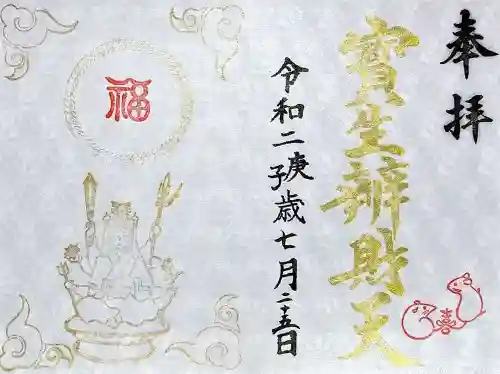 奉拝
寳生辨財天
令和二庚子歳七月二十五日
福
喜